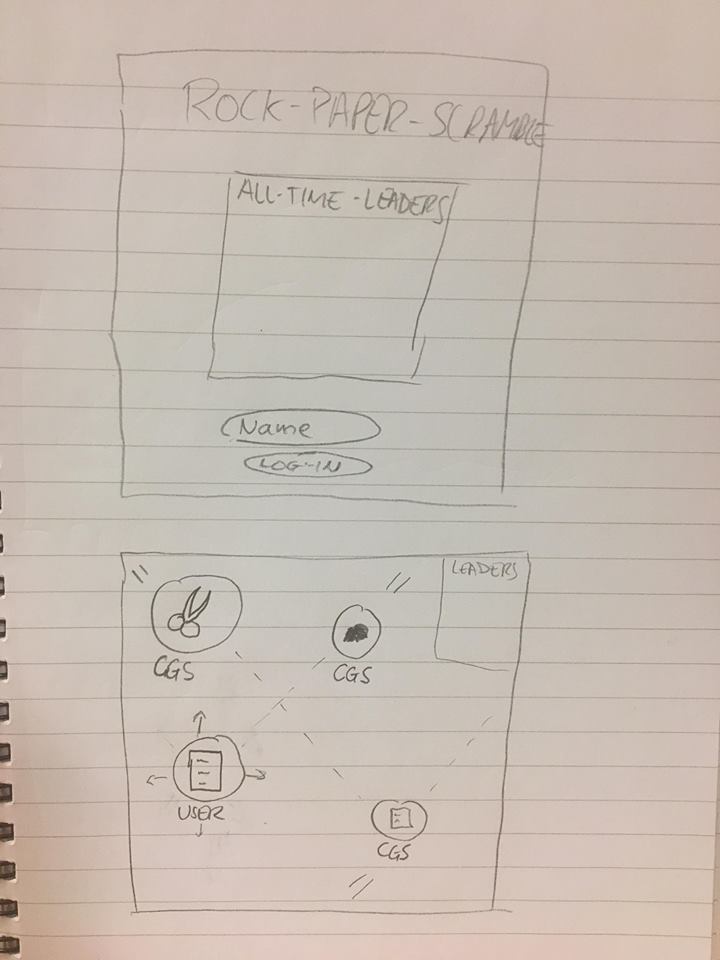 ROCK-PAPER-SCRAMBLE
ALL-TIME-LEADERS
Name
LOG-IN
LEADERS
CGS
CGS
USER
CGS